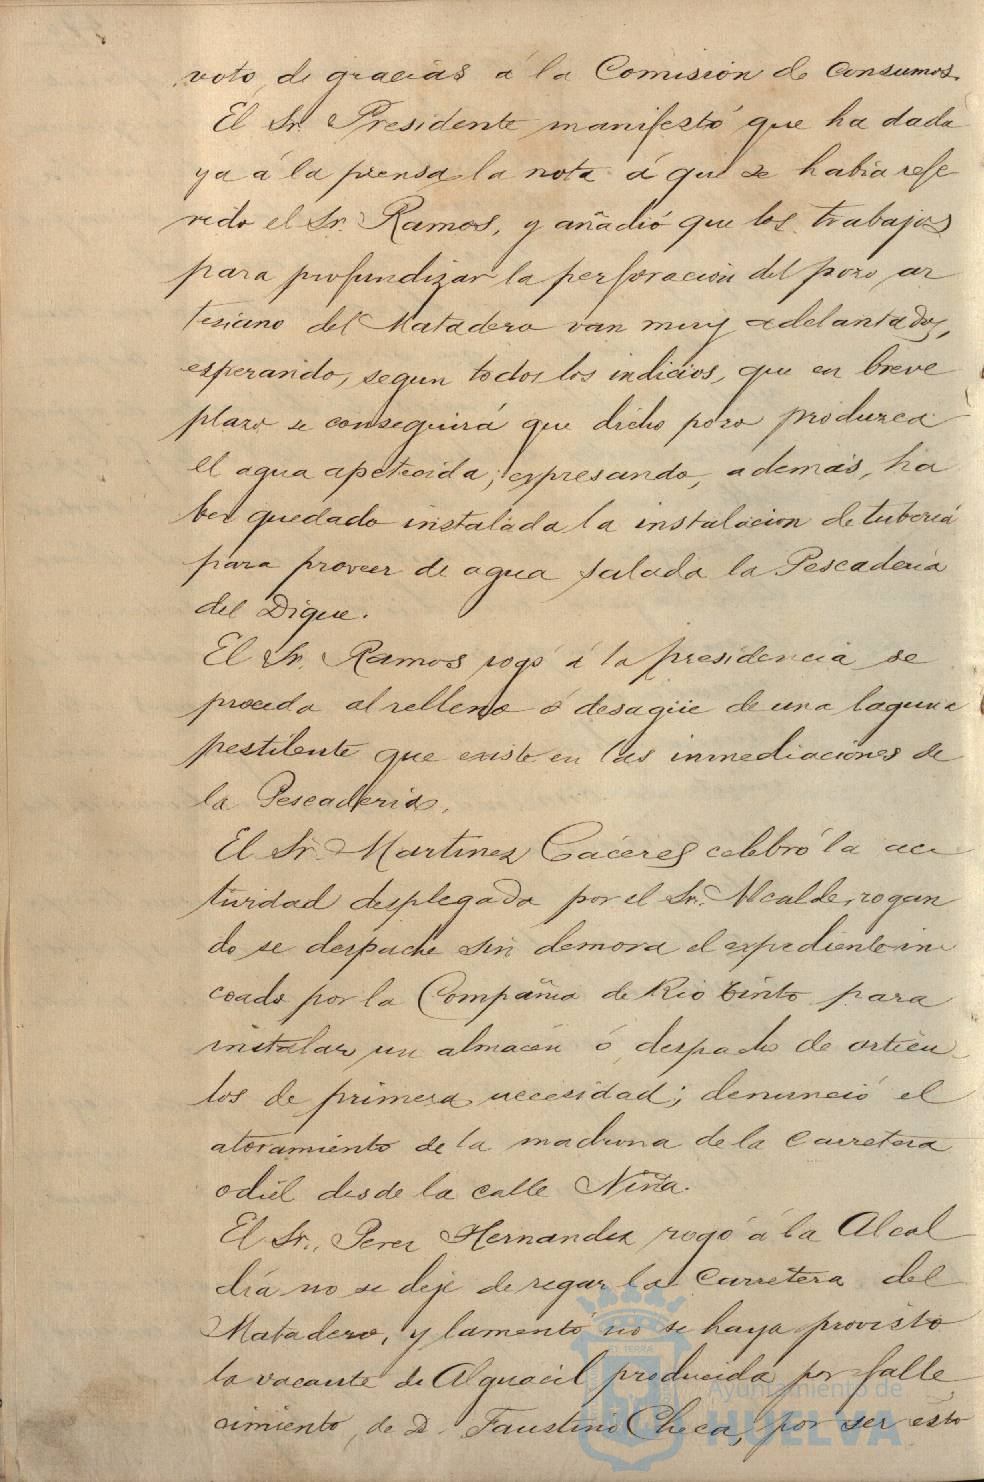 voto de gracias á la Comisión de Consumos.
El Sr. Presidente manifestó que ha dado
ya á la prensa la nota á que se habia refe
rido el Sr. Ramos, y añadió que los trabajos
para profundizar la perforación del pozo ar
tesiano del Matadero van muy adelantados,
esperando, segun todos los indicios, que en breve
plazo se conseguirá que dicho pozo produzca
el agua apetecida; expresando, además, ha
ber quedado instalada la instalacion de tubería
para proveer de agua salada la Pescadería
del Dique.
El Sr. Ramos rogó á la presidencia se
proceda al relleno ó desagüe de una laguna
pestilente que existe en las inmediaciones de
la Pescaderia.
El Sr. Martinez Cáceres celebró la ac
tividad desplegada por el Sr. Alcalde, rogan
do se despache sin demora el expediente in
coado por la Compañia de Rio Tinto para
instalar un almacén ó despacho de articu
los de primera necesidad; denunció el
atoramiento de la madrona de la Carretera
odiel desde la calle Niña.
El Sr. Perez Hernandez rogó á la Alcal
día no se deje de regar la Carretera del
Matadero, y lamentó no se haya provisto
la vacante de Alguacil producida por falle
cimiento, de D. Faustino Checa, por ser ésto
Ayuntamiento de
HUELVA